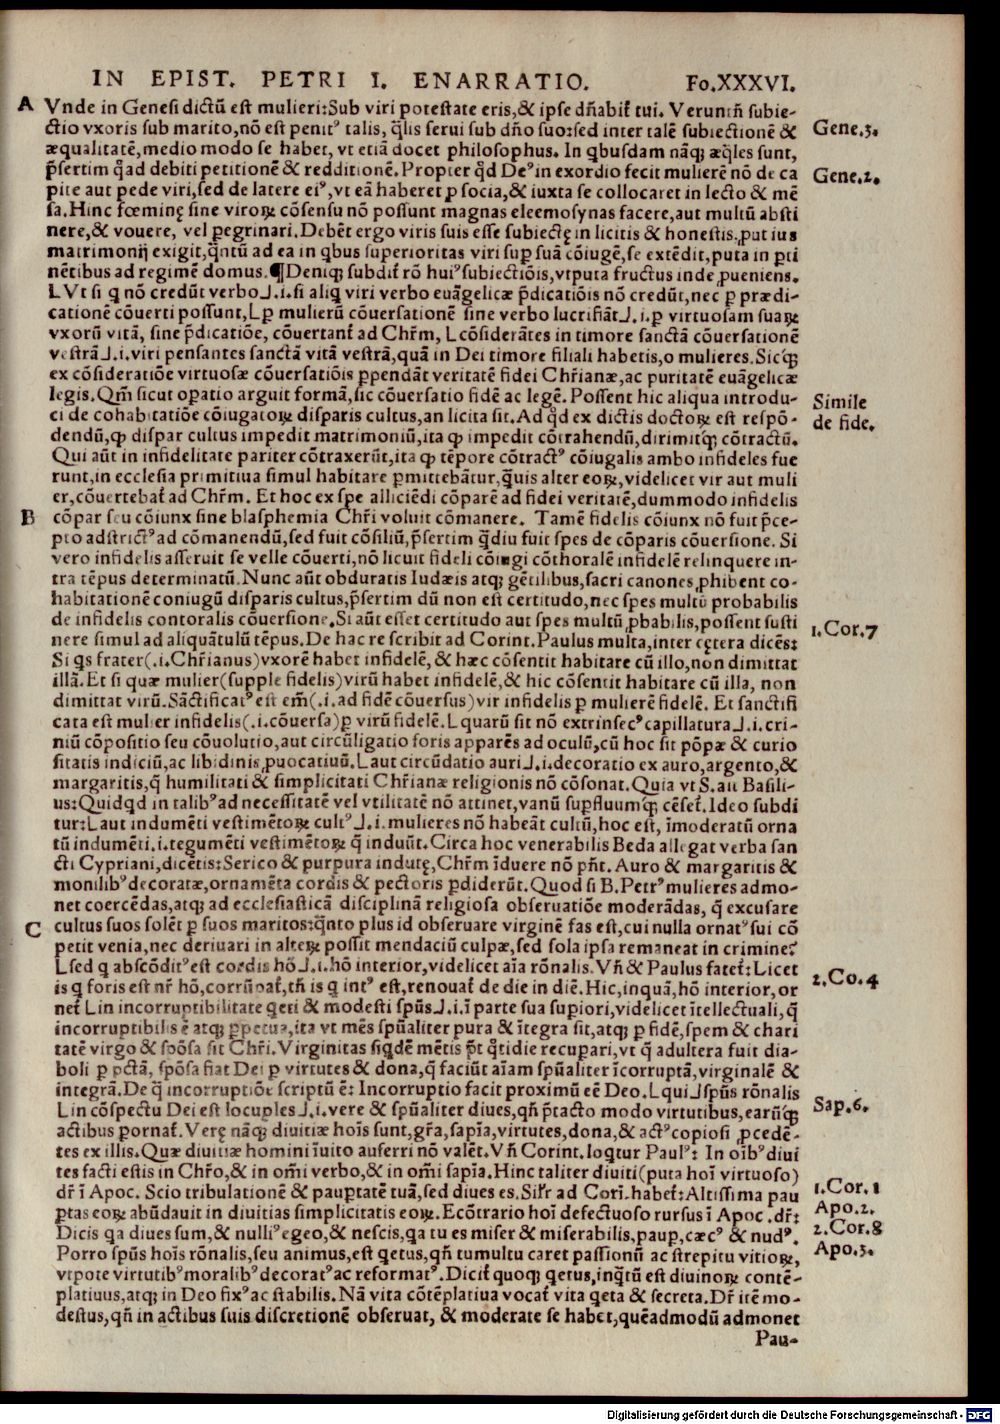 IN EPIST. PETRI I. ENARRATIO. Fo.XXXVI.
A Vnde in Genesi dictū est mulieri:Sub viri potestate eris,& ipse dñabit̃ tui. Verunt̃ñ subie-
ctio vxoris sub marito,nō est penitꝰ talis, q̄lis serui sub dño suo:sed inter talē subiectionē &
æqualitatē,medio modo se habet, vt etiā docet philosophus. In qbusdam nāq; æq̄les sunt,
p̄sertim q̄ad debiti petitionē & redditionē. Propter qd̄ Deꝰ in exordio fecit mulierē nō de ca
pite aut pede viri,sed de latere eiꝰ,vt eā haberet ꝑ socia,& iuxta se collocaret in lecto & mē
sa. Hinc fœminę sine viroꝝ cōsensu nō possunt magnas eleemosynas facere,aut multū absti
nere,& vouere, vel ꝑegrinari. Debēt ergo viris suis esse subiectę in licitis & honestis,ꝓut ius
matrimonij exigit,q̄ntū ad ea in qbus superioritas viri suꝑ suā cōiugē,se extēdit,puta in ꝑti
nētibus ad regimē domus.¶Deniq; subdit̃ rō huiꝰ subiectiōis,vtputa fructus inde ꝓueniens.
⌊Vt si q nō credūt verbo⌋.i.si aliq viri verbo euāgelicæ p̄dicatiōis nō credūt,nec ꝑ prædi-
cationē cōuerti possunt,⌊ꝑ mulierū cōuersationē sine verbo lucrifiāt⌋.i.ꝑ virtuosam suaꝝ
vxorū vitā, sine p̄dicatiōe, cōuertant̃ ad Chr̄m, ⌊cōsiderātes in timore sanctā cōuersationē
vestrā⌋.i.viri pensantes sanctā vitā vestrā,quā in Dei timore filiali habetis,o mulieres. Sicq;
ex cōsideratiōe virtuosæ cōuersatiōis ꝑpendāt veritatē fidei Chr̄ianæ,ac puritatē euāgelicæ
legis. Qm̄ sicut oꝑatio arguit formā,sic cōuersatio fidē ac legē. Possent hic aliqua introdu-
ci de cohabitatiōe cōiugatoꝝ disparis cultus,an licita sit. Ad qd̄ ex dictis doctoꝝ est respō-
dendū,ꝙ dispar cultus impedit matrimoniū,ita ꝙ impedit cōtrahendū,dirimitq; cōtractū.
Qui aūt in infidelitate pariter cōtraxerūt,ita ꝙ tēpore cōtractꝰ cōiugalis ambo infideles fue
runt,in ecclesia primitiua simul habitare ꝑmittebātur,q̄uis alter eoꝝ,videlicet vir aut muli
er,cōuertebat̃ ad Chr̄m. Et hoc ex spe alliciēdi cōparē ad fidei veritatē,dummodo infidelis
B cōpar seu cōiunx sine blasphemia Chr̄i voluit cōmanere. Tamē fidelis cōiunx nō fuit p̄ce-
pto adstrictꝰ ad cōmanendū,sed fuit cōsiliū,p̄sertim q̄diu fuit spes de cōparis cōuersione. Si
vero infidelis asseruit se velle cōuerti,nō licuit fideli cōiugi cōthoralē infidelē relinquere in-
tra tēpus determinatū. Nunc aūt obduratis Iudæis atq; gētilibus,sacri canones ꝓhibent co-
habitationē coniugū disparis cultus,p̄sertim dū non est certitudo,nec spes multū probabilis
de infidelis contoralis cōuersiōne. Si aūt esset certitudo aut spes multū ꝓbabilis,possent susti
nere simul ad aliquātulū tēpus. De hac re scribit ad Corint. Paulus multa,inter cętera dicēs:
Si qs frater(.i.Chr̄ianus)vxorē habet infidelē, & hæc cōsentit habitare cū illo,non dimittat
illā. Et si quæ mulier(supple fidelis)virū habet infidelē,& hic cōsentit habitare cū illa, non
dimittat virū. Sāctificatꝰ est em̄(.i.ad fidē cōuersus)vir infidelis ꝑ mulierē fidelē. Et sanctifi
cata est mulier infidelis(.i.cōuersa)ꝑ virū fidelē. ⌊quarū sit nō extrinsecꝰ capillatura⌋.i.cri-
niū cōpositio seu cōuolutio,aut circūligatio foris apparēs ad oculū,cū hoc sit pōpæ & curio
sitatis indiciū,ac libidinis ꝓuocatiuū.⌊aut circūdatio auri⌋.i.decoratio ex auro,argento,&
margaritis,q̄ humilitati & simplicitati Chr̄ianæ religionis nō cōsonat. Quia vt S.ait Basili-
us:Quidqd in talibꝰ ad necessitatē vel vtilitatē nō attinet,vanū suꝑfluumq; cēset̃.Ideo subdi
tur:⌊aut indumēti vestimētoꝝ cultꝰ⌋.i.mulieres nō habeāt cultū,hoc est, īmoderatū orna
tū indumēti.i.tegumēti vestimētoꝝ q̄ induūt. Circa hoc venerabilis Beda allegat verba san
cti Cypriani,dicētis:Serico & purpura indutę,Chr̄m īduere nō pn̄t. Auro & margaritis &
monilibꝰ decoratæ,ornamēta cordis & pectoris ꝑdiderūt. Quod si B.Petrꝰ mulieres admo-
net coercēdas,atq; ad ecclesiasticā disciplinā religiosa obseruatiōe moderādas, q̄ excusare
C cultus suos solēt ꝑ suos maritos:q̄nto plus id obseruare virginē fas est,cui nulla ornatꝰ sui cō
petit venia,nec deriuari in alteꝝ possit mendaciū culpæ,sed sola ipsa remaneat in crimine?
⌊sed q abscōditꝰ est cordis hō⌋.i.hō interior,videlicet aīa rōnalis. Vñ & Paulus fatet̃:Licet
is q foris est nr̄ hō,corrūpat̃,tñ is q intꝰ est,renouat̃ de die in diē. Hic,inquā,hō interior,or
net̃ ⌊in incorruptibilitate qeti & modesti spūs⌋.i.ī parte sua suꝑiori,videlicet ītellectuali,q̄
incorruptibilis ē atq; ꝑpetua,ita vt mēs spūaliter pura & ītegra sit,atq; ꝑ fidē,spem & chari
tatē virgo & spōsa sit Chr̄i. Virginitas siqdē mētis p̄t q̄tidie recuꝑari,vt q̄ adultera fuit dia-
boli ꝑ pctā, spōsa fiat Dei ꝑ virtutes & dona,q̄ faciūt aīam spūaliter īcorruptā,virginalē &
integrā. De q̄ incorruptiōe scriptū ē: Incorruptio facit proximū eē Deo. ⌊qui⌋spūs rōnalis
⌊in cōspectu Dei est locuples⌋.i.vere & spūaliter diues,qñ p̄tacto modo virtutibus,earūq;
actibus ꝑornat̃. Verę nāq; diuitiæ hoīs sunt,gr̄a,sapīa,virtutes,dona,& actꝰ copiosi ꝓcedē-
tes ex illis. Quæ diuitiæ homini īuito auferri nō valēt. Vñ Corint. loqtur Paulꝰ: In oībꝰ diui
tes facti estis in Chr̄o,& in om̄i verbo,& in om̄i sapīa. Hinc taliter diuiti(puta hoī virtuoso)
dr̄ ī Apoc. Scio tribulationē & pauꝑtatē tuā,sed diues es. Silr̄ ad Cori.habet̃:Altissima pau
ꝑtas eoꝝ abūdauit in diuitias simplicitatis eoꝝ. Ecōtrario hoī defectuoso rursus ī Apoc.dr̄:
Dicis qa diues sum,& nulliꝰ egeo,& nescis,qa tu es miser & miserabilis,pauꝑ,cæcꝰ & nudꝰ.
Porro spūs hoīs rōnalis,seu animus,est qetus,qñ tumultu caret passionū ac strepitu vitioꝝ,
vtpote virtutibꝰ moralibꝰ decoratꝰ ac reformatꝰ. Dicit̃ quoq; qetus,inq̄tū est diuinoꝝ contē-
platiuus,atq; in Deo fixꝰ ac stabilis. Nā vita cōtēplatiua vocat̃ vita qeta & secreta. Dr̄ itē mo-
destus,qñ in actibus suis discretionē obseruat, & moderate se habet,quēadmodū admonet
Pau-
Gene.3.
Gene.2.
Simile
de fide.
1.Cor.7
2.Co.4
Sap.6.
1.Cor.1
Apo.2.
2.Cor.8
Apo.3.
Digitalisierung gefördert durch die Deutsche Forschungsgemeinschaft - DFG